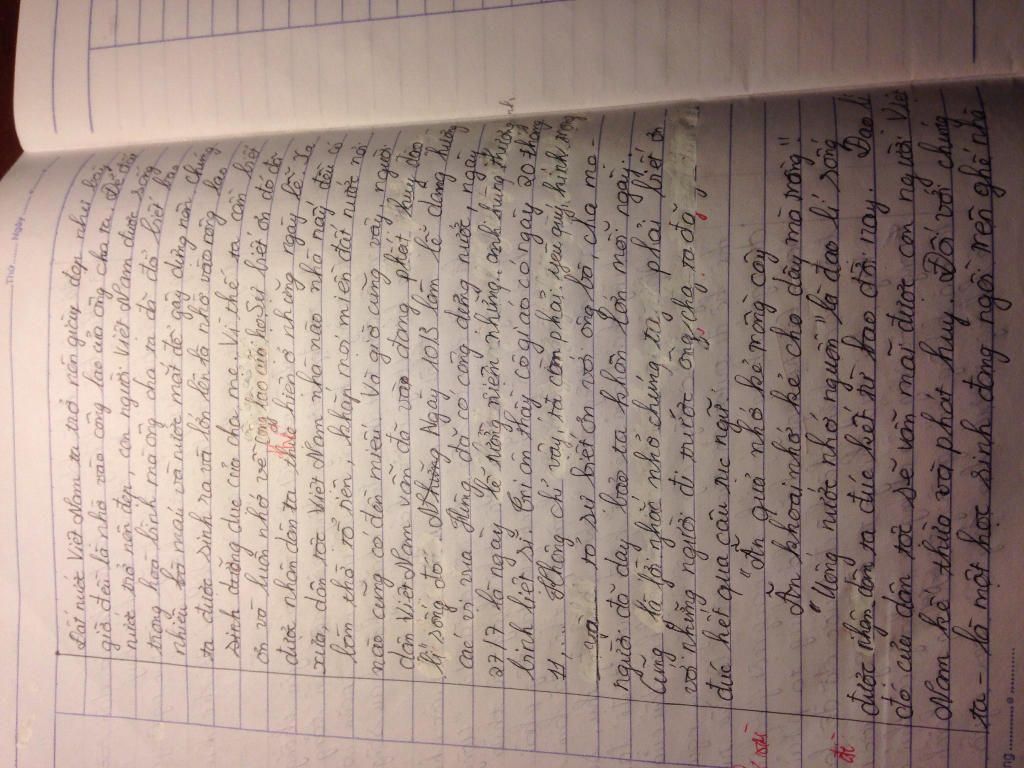 Thứ ........ Ngày
Đất nước Việt Nam ta trở nên giàu đẹp như bây
giờ đều là nhờ vào công lao của ông cha ta. Để đất
nước trở nên đẹp, con người Việt Nam được sống
trong hòa bình mà ông cha ta đã đổ biết bao
nhiêu mồ hôi và nước mắt để gây dựng nên chúng
ta được sinh ra và lớn lên là nhờ vào công lao
sinh dưỡng dục của cha mẹ. Vì thế ta cần biết
ơn và luôn nhớ về công lao của họ. Sự biết ơn đó đã
được nhân dân ta thể hiện ở những ngày lễ. Từ
xưa dân tộc Việt Nam nhà nào nhà nấy đều có
bàn thờ tổ tiên, khắp mọi miền đất nước nơi
nào cũng có đền miếu. Và giờ cũng vậy, người
dân Việt Nam vẫn đã và đang phát huy đạo
lí sống đó. Những Ngày 10/3 làm lễ dâng hương
các vị vua Hùng đã có công dựng nước, ngày
27/7 là ngày lễ những anh hùng thương
binh liệt sĩ. Tri ân thầy cô giáo có ngày 20 tháng
11,... Không chỉ vậy, ta còn phải yêu quý, kính trọng
và tỏ sự biết ơn với ông bà, cha mẹ -
người đã dạy bảo ta khôn lớn mỗi ngày.
Cũng là lời nhắc nhở chúng ta phải biết ơn
với những người đi trước ông cha ta đã
đúc kết qua câu tục ngữ:
"Ăn quả nhớ kẻ trồng cây
Ăn khoai nhớ kẻ cho dây mà trồng"
"Uống nước nhớ nguồn" là đạo lí sống
được nhân dân ta đúc kết từ bao đời nay. Đạo lí
đó của dân tộc sẽ vẫn mãi được con người Việt
Nam kế thừa và phát huy. Đối với chúng
ta - là một học sinh đang ngồi trên ghế nhà